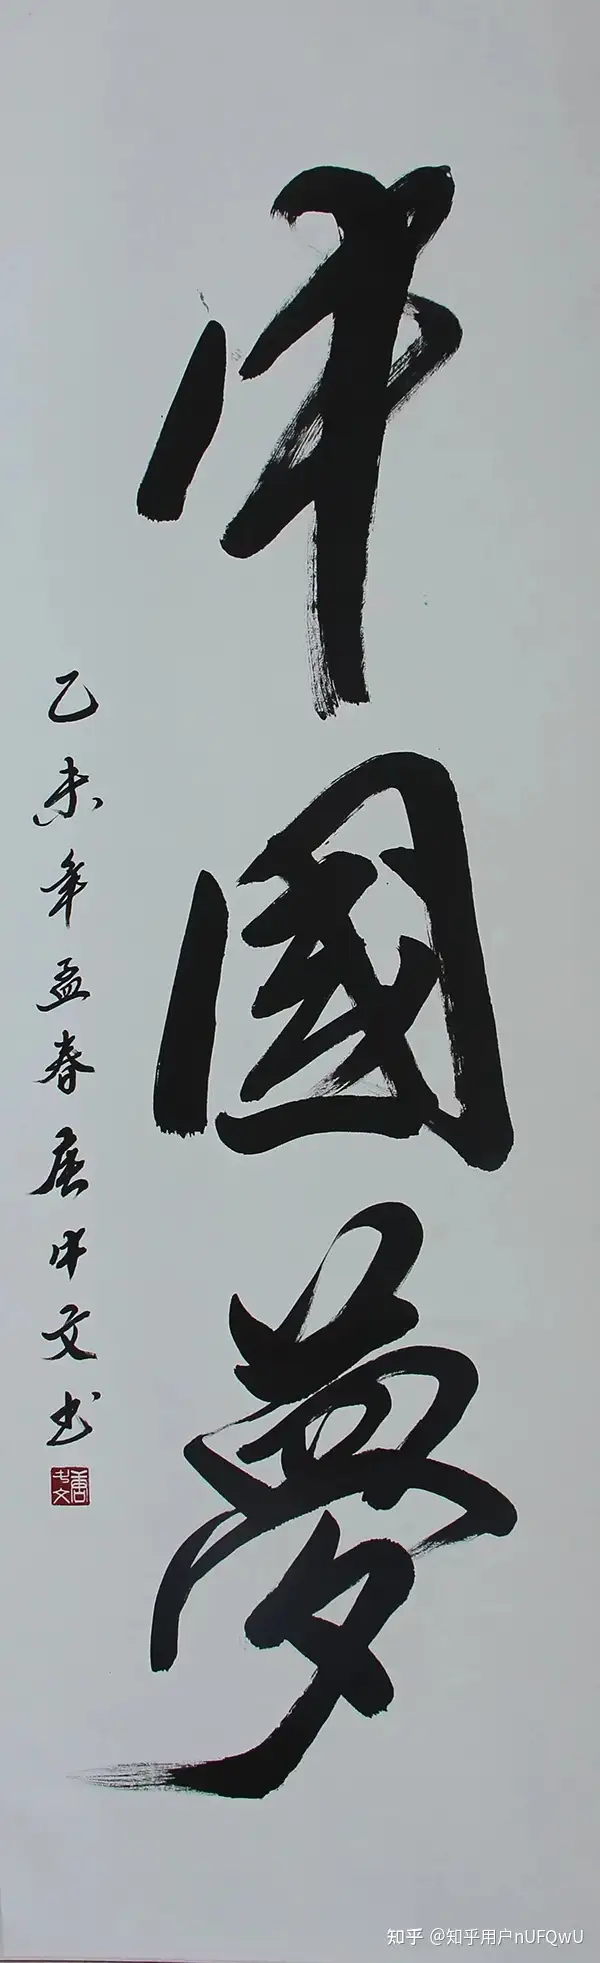 中國夢
乙未年孟春唐中文书
知乎 @知乎用户nUFQwU